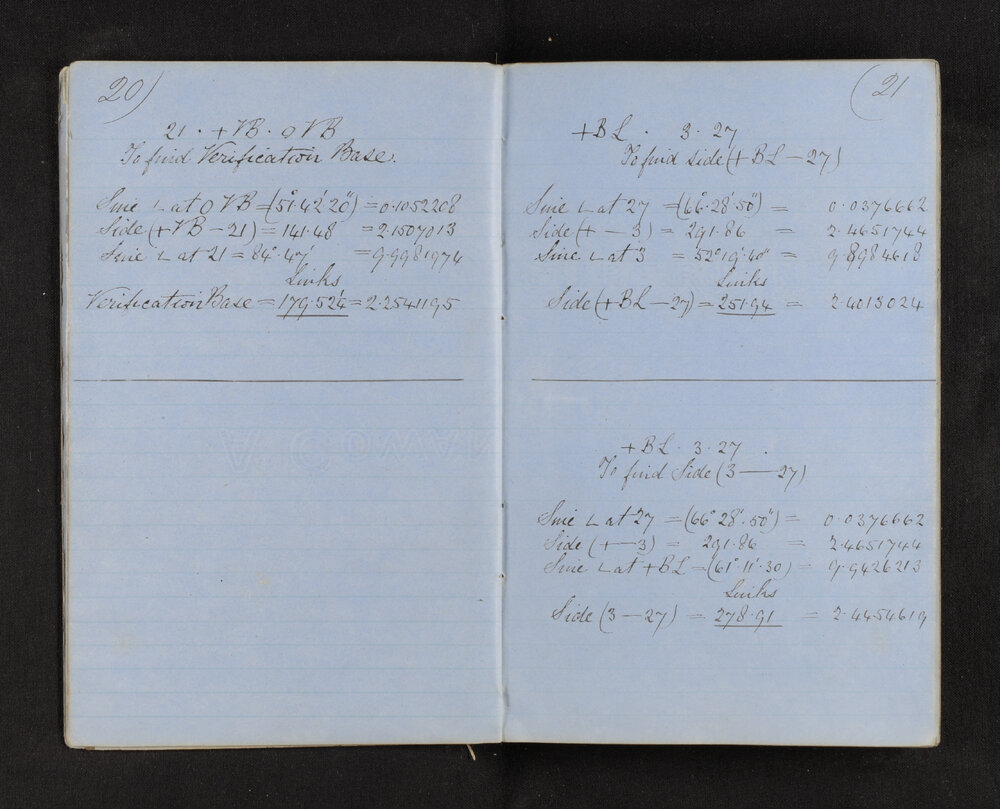 20)
21 . + VB . 0 VB
To find Verification Base.
Sine ∟ at 0 VB = (51°.42'.20") = 0.1052208
Side (+ VB — 21) = 141.48 = 2.1507013
Sine ∟ at 21 = 84°.47' = 9.9981974
Links
Verification Base = 179.524 = 2.2541195
(21
+ BL . 3 . 27
To find side (+ BL — 27)
Sine ∟ at 27 = (66°.28'.50") = 0.0376662
Side (+ — 3) = 291.86 = 2.4651744
Sine ∟ at 3 = 52°19'.40" = 9.8984618
Links
Side (+ BL — 27) = 251.94 = 2.4013024
+ BL . 3 . 27 .
To find Side (3 — 27)
Sine ∟ at 27 = (66° 28'.50") = 0.0376662
Side (+ — 3) = 291.86 = 2.4651744
Sine ∟ at + BL = (61°.11'.30) = 9.9426213
Links
Side (3 — 27) = 278.91 = 2.4454619